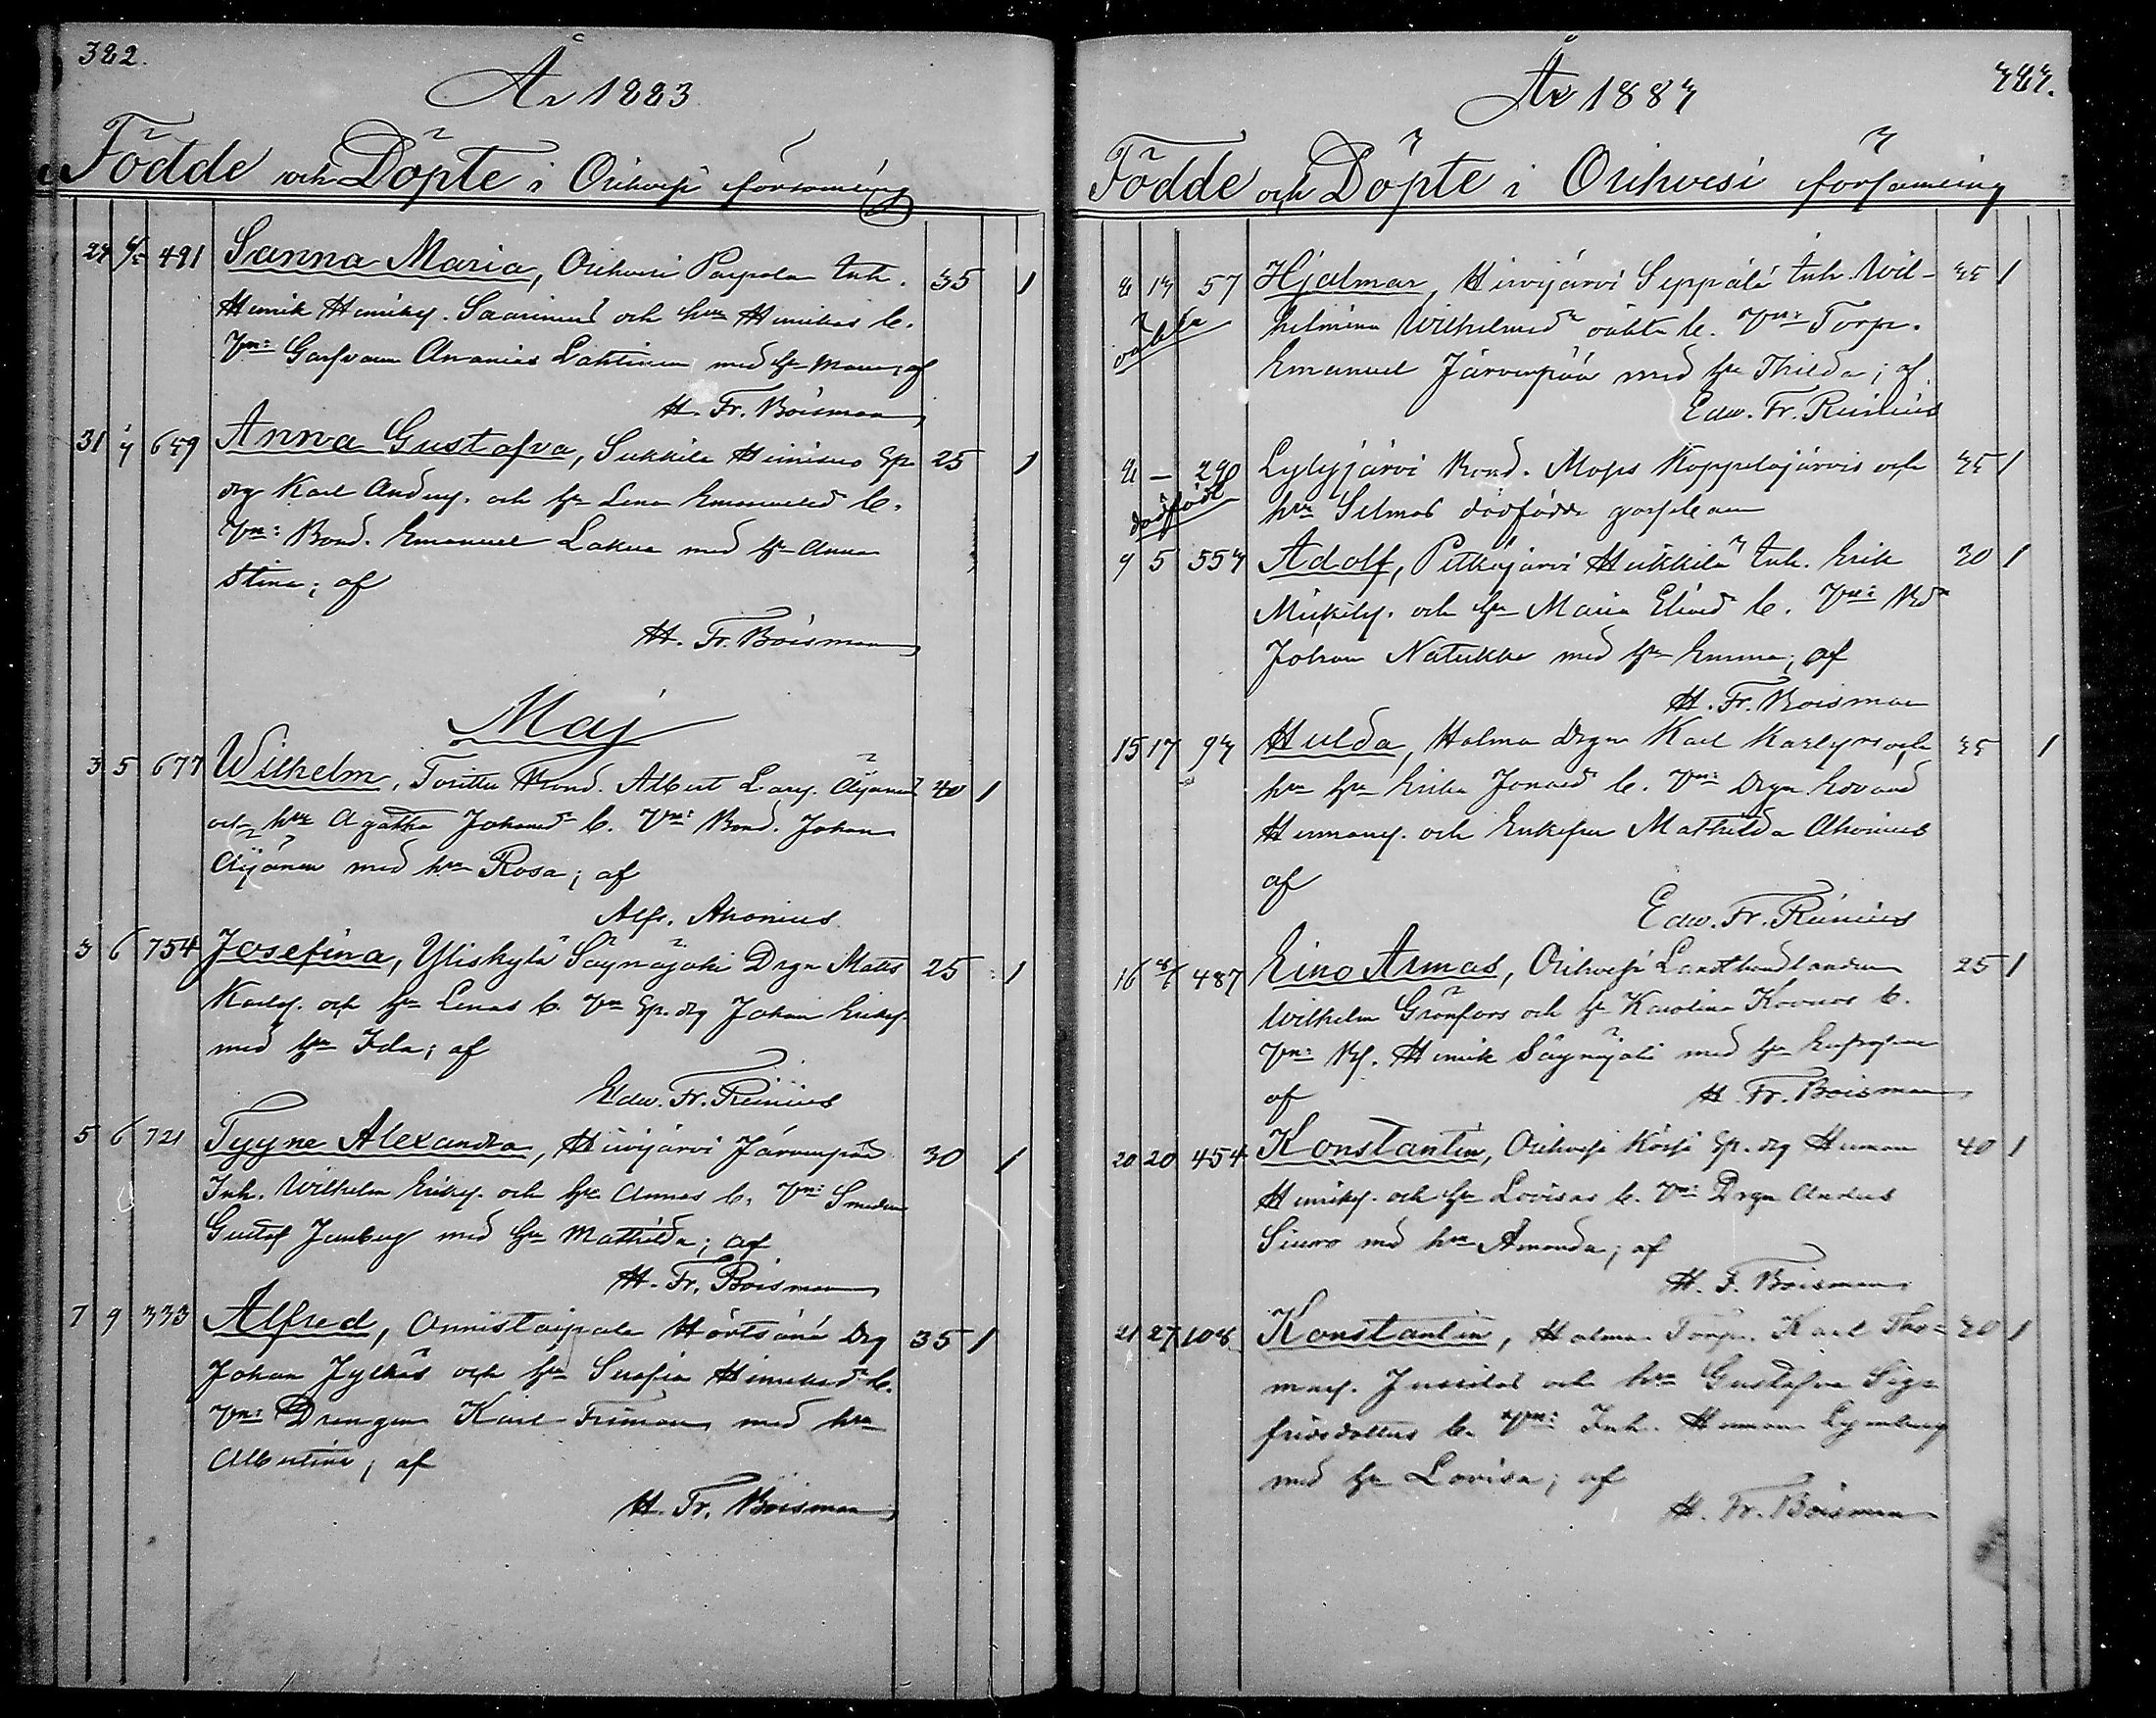 322.
År 1883
Födde och Döpte i Orihvesi församling
491 Sanna Maria, Orihvesi Parpola Inh. 35 1
Henrik Henriks. Saarinens och hru Henrikas b.
Vn: Garfvaren Ananias Lahtinen med hu Maria; af
H. Fr. Boisman
31 649 Anna Gustafva, Sukkila 25 1
drg Karl Anders. och hu Lena Emanuelsd b.
Vn: Bond. Emanuel Lakua med hu Anna
Stina; af
H. Fr. Boisman
Maj
3 5 677 Wilhelm, Torittu Bond. Albert Lars. Äijänens 40 1
och hru Agatha Johansd b. Vn: Bond. Johan
Äijänen med hru Rosa; af
Alfr. Ahonius
3 6 754 Josefina, Yliskylä Säynäjoki Drgn Matts 25 1
Karls. och hu Lenas b. Vn Sp. drg Johan Eriks.
med hu Ida; af
Edw. Fr. Reinius
5 6 721 Tyyne Alexandra, Hirvijärvi Järvenpää 30 1
Inh. Wilhelm Eriks. och hu Annas b. Vn: Smeden
Gustaf med hu Mathilda; af
H. Fr. Boisman
7 9 333 Alfred, Onnistaipale Hörtsänä Drg 35 1
Johan Jylhäs och hu Serafia Henriksd b.
Vn: Drengen Karl Friman med hru
Albertina; af
H. Fr. Boisman
323.
År 1883
Födde och Döpte i Orihvesi församling
8 13 57 Hjalmar, Hirvijärvi Seppälä Inh. Wil- 35 1
oäkta
helmina Wilhelmsd oäkta b. Vn: Torp.
Emanuel Järvenpää med hu Thilda; af
Edw. Fr. Reinius
8 – 290 Lylyjärvi Bond. Moses Koppelojärvis och 35 1
dödfödt
hru Selmas dödfödde gossebarn
9 5 553 Adolf, Pitkäjärvi Heikkilä Inh. Erik 30 1
Mickels. och hu Maria Elisd b. Vn: Bd
Johan Natukka med hu Emma; af
H. Fr. Boisman
15 17 93 Hulda, Holma Drgn Karl Karlssons och 35 1
hru Erika Jonasd b. Vn: Drgn Edvard
Hermans. och Enkefru Mathilda Ahonius
af
Edw. Fr. Reinius
16 487 Eino Armas, Orihvesi Landthandlanden 25 1
Wilhelm Grönfors och hu Karolina b.
Vn: Henrik Säynäjoki med hu Eufrosyne
af
H. Fr. Boisman
20 20 454 Konstantin, Orihvesi Sp. drg Herman 40 1
Henriks. och hu Lovisas b. Vn: Drgn Anders
Siuro md hru Amanda; af
H. F. Boisman
21 27 108 Konstantin, Holma Torp. Karl Tho- 30 1
mas. Jussilas och hru Gustafva Sig-
fridsdotters b. Vn: Inh. Herman
med hu Lovisa; af
H. Fr. Boisman